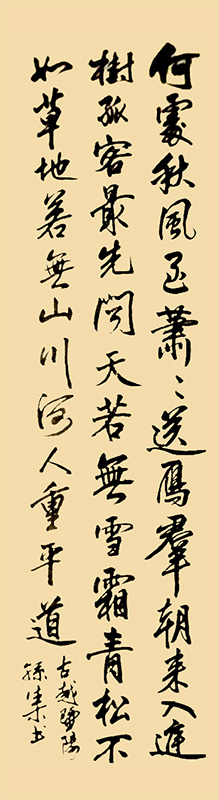 何處秋風至蕭〻送鴈羣朝来入庭
樹孤客最先闻天若無雪霜青松不
如草地若無山川何人重平道
古越暨陽
孫集书